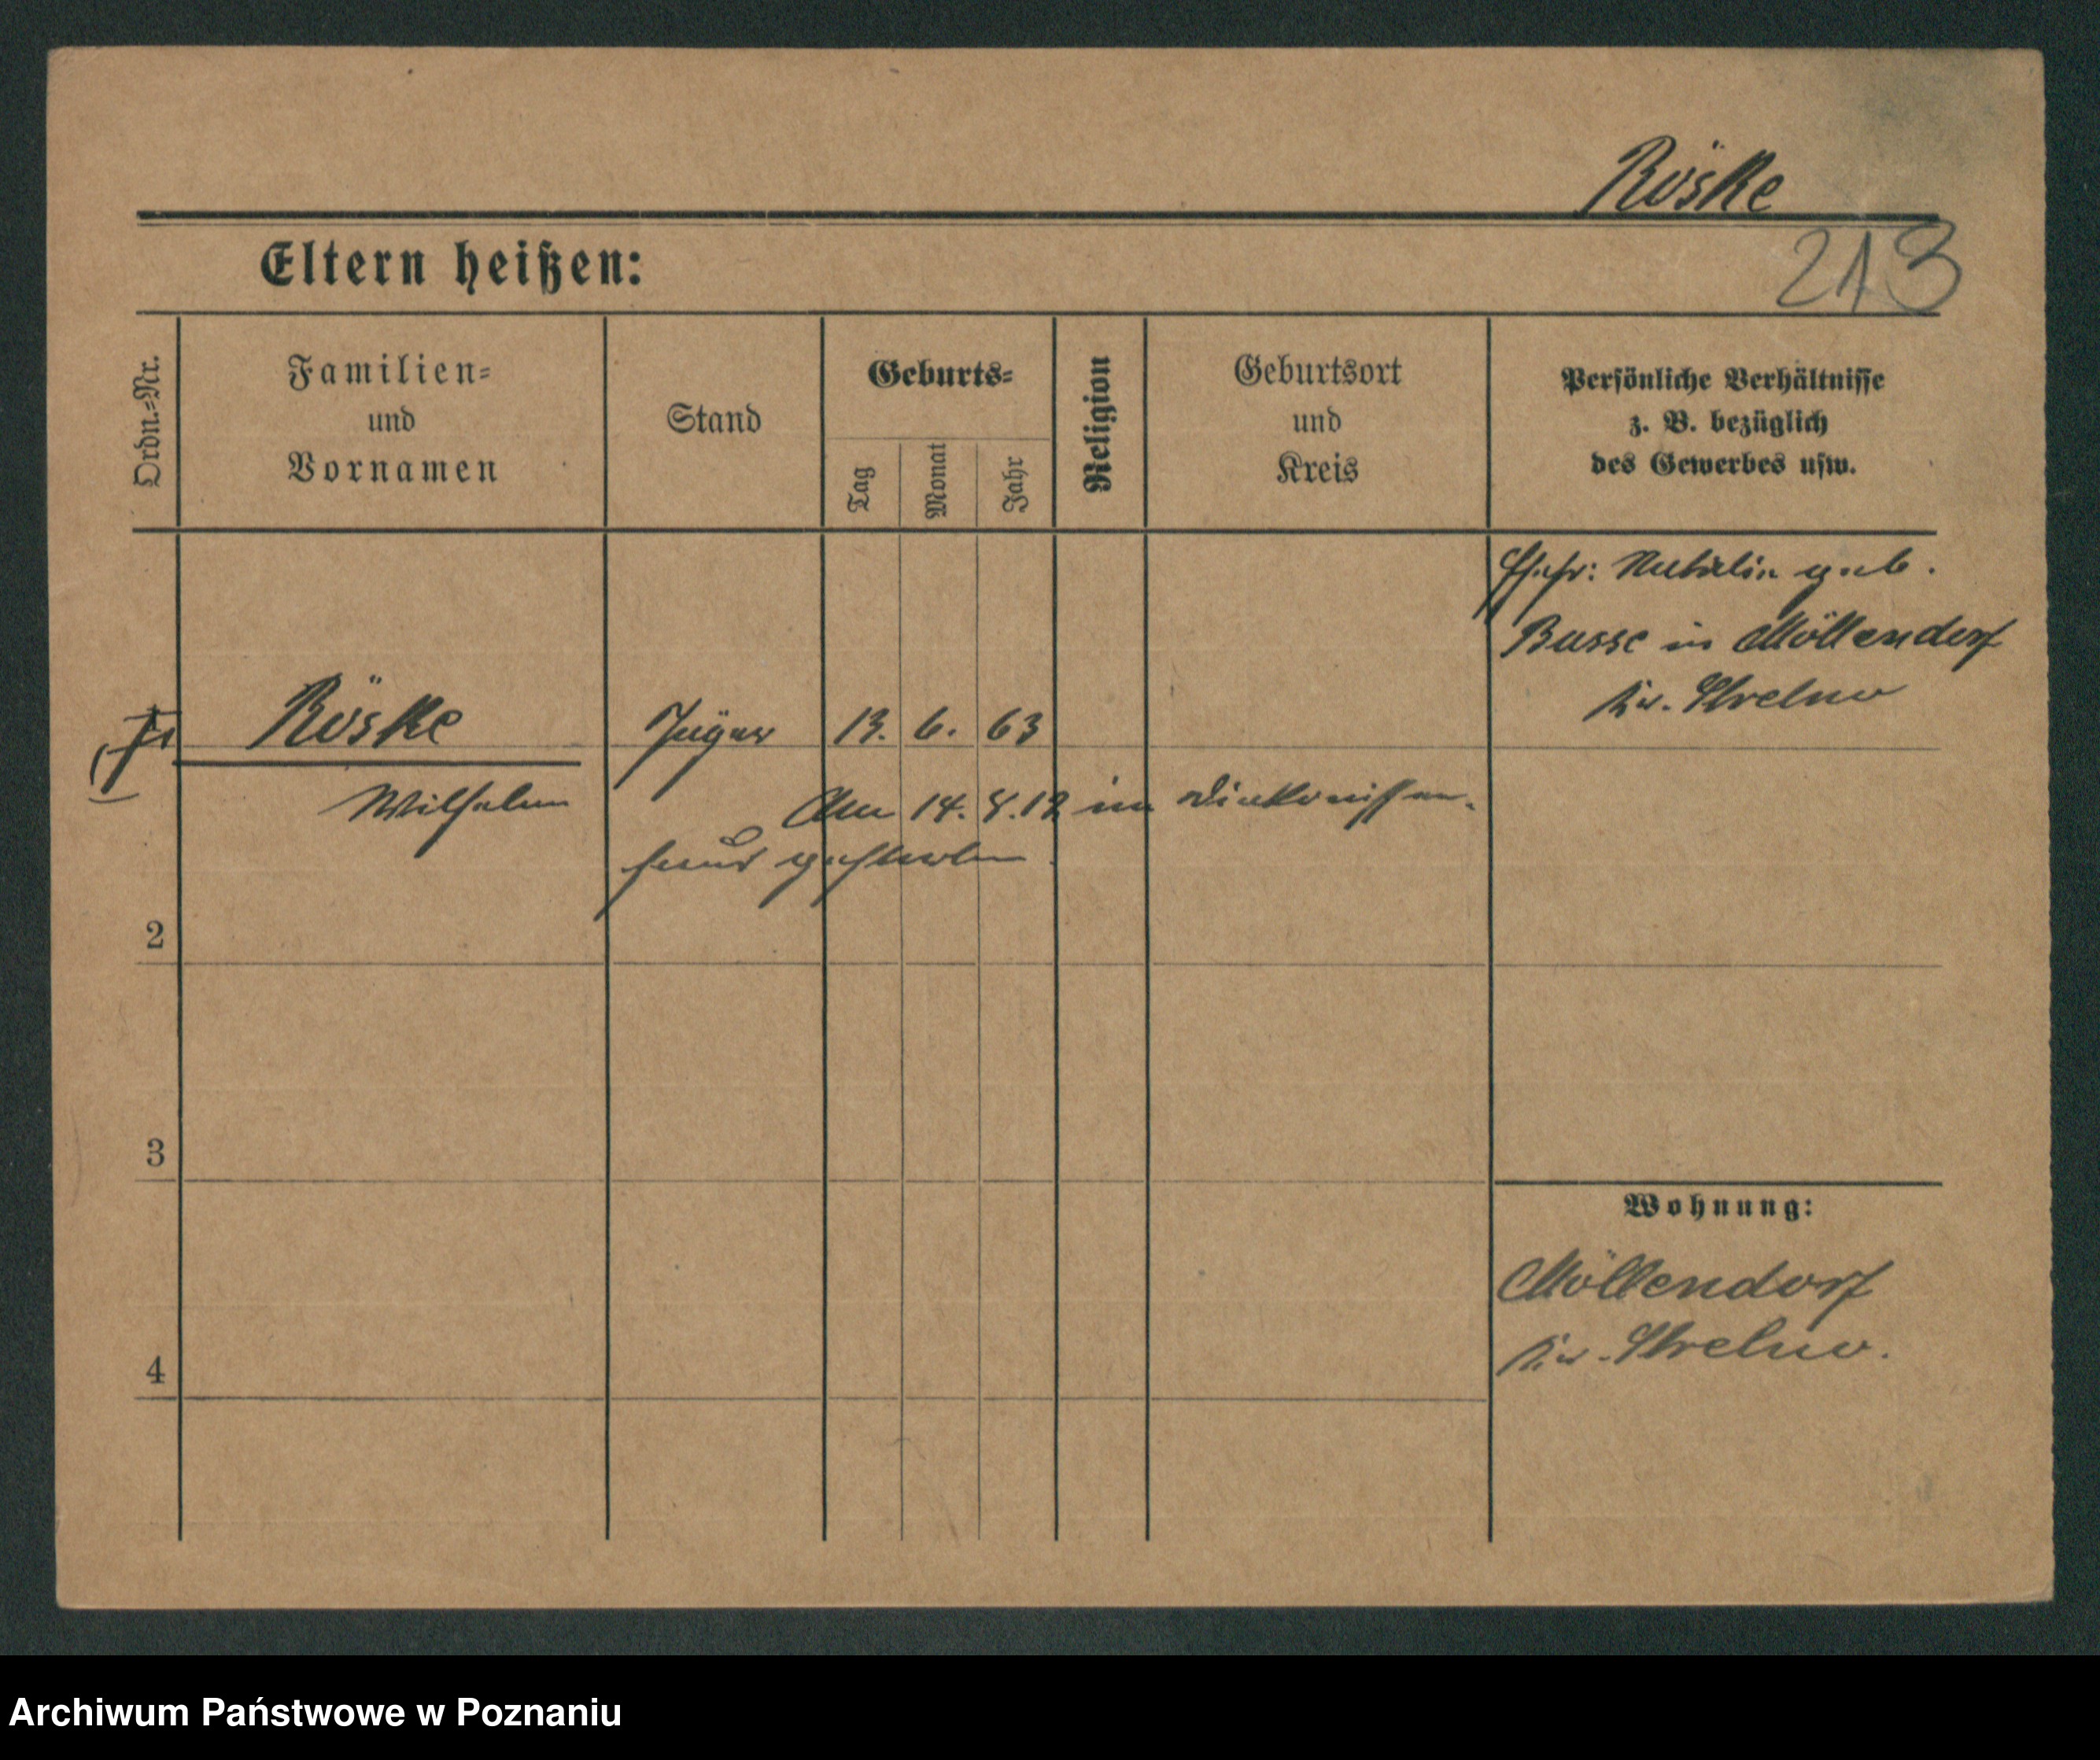 Röske
Eltern heißen:
213
Ordn.-Nr.
Familien-
und
Vornamen
Stand
Geburts-
Tag
Monat
Jahr
Religion
Geburtsort
und
Kreis
Persönliche Verhältnisse
z. B. bezüglich
des Gewerbes usw.
Ehefr: Natalie geb.
Busse in Möllendorf
Kr. Strelno
1
Röske
Jäger
13. 6. 63
Wilhelm
Am 14. 8. 12 im Diakonissen-
haus gestorben
2
3
4
Wohnung:
Möllendorf
Kr. Strelno.
Archiwum Państwowe w Poznaniu